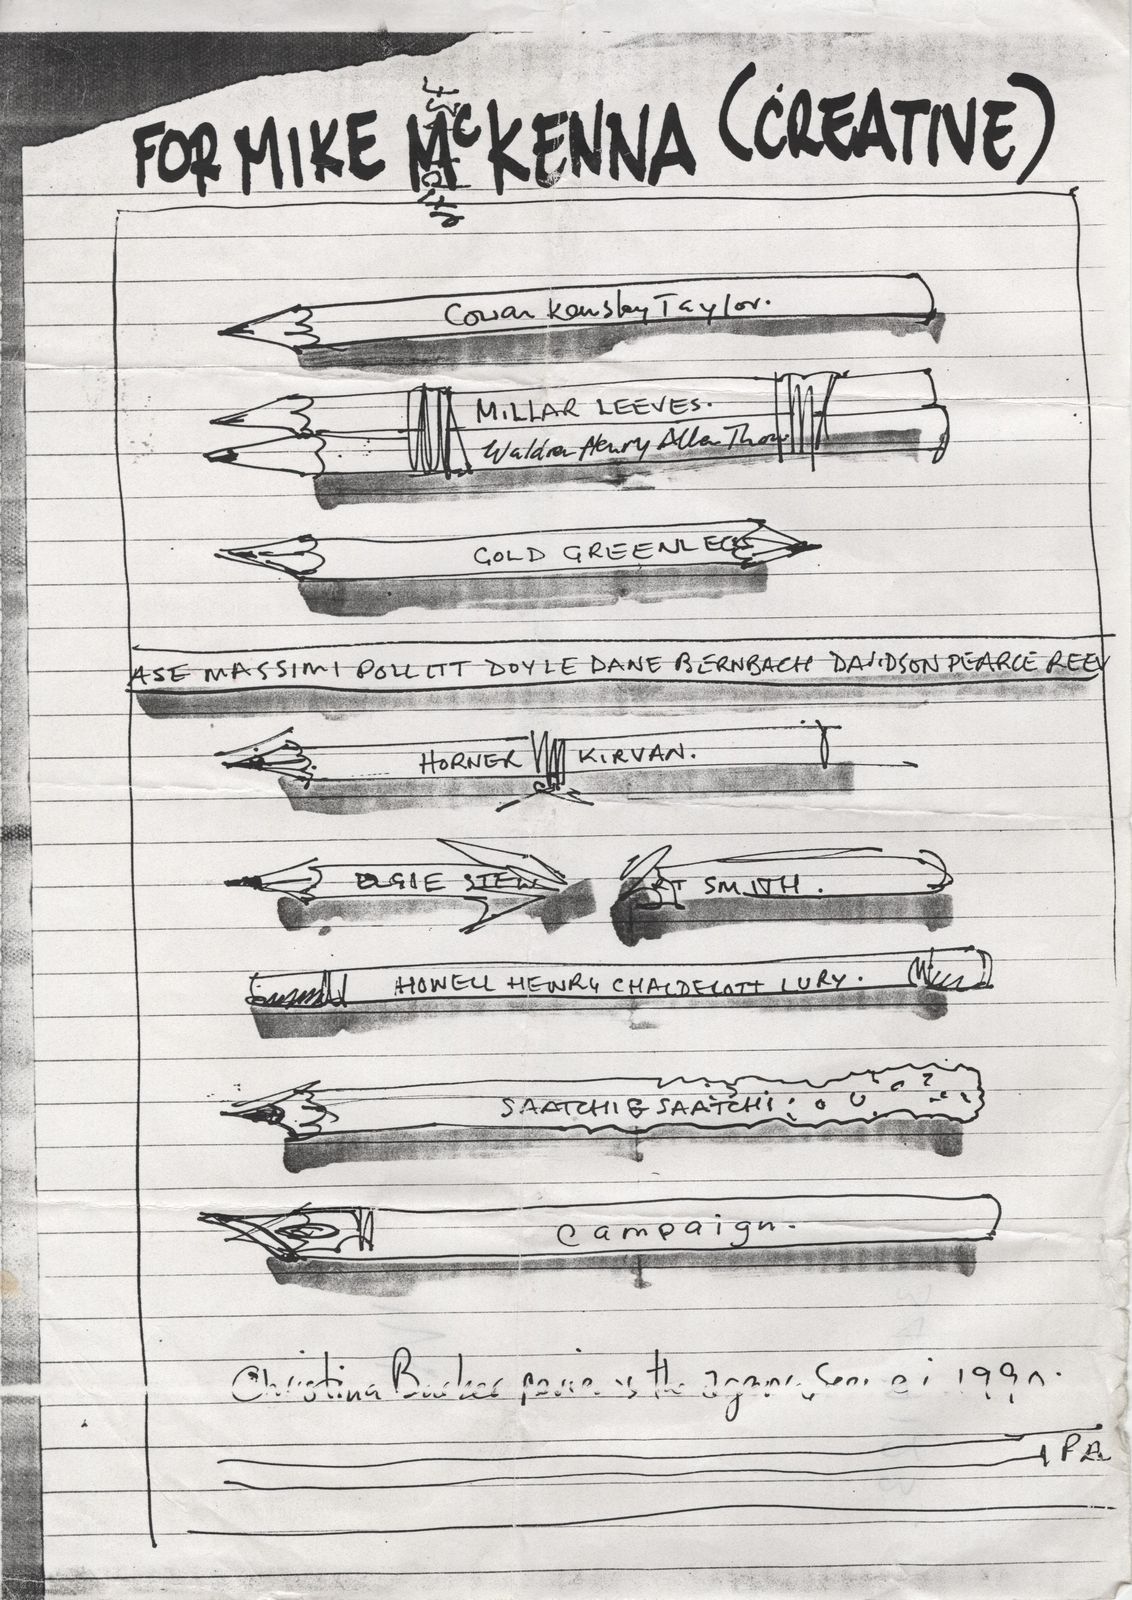 FOR MIKE McKENNA (CREATIVE)
Cowan Kemsley Taylor.
MILLAR LEEVES.
Waldron Henry Allen Thom
GOLD GREENLEES
ASE MASSIMI POLLITT DOYLE DANE BERNBACH DAVIDSON PEARCE REEV
HORNER KIRVAN.
ELGIE STEW RT SMITH.
HOWELL HENRY CHALDECOTT LURY.
SAATCHI & SAATCHI
Campaign.
Christina Barker the agency 1990.
IPA